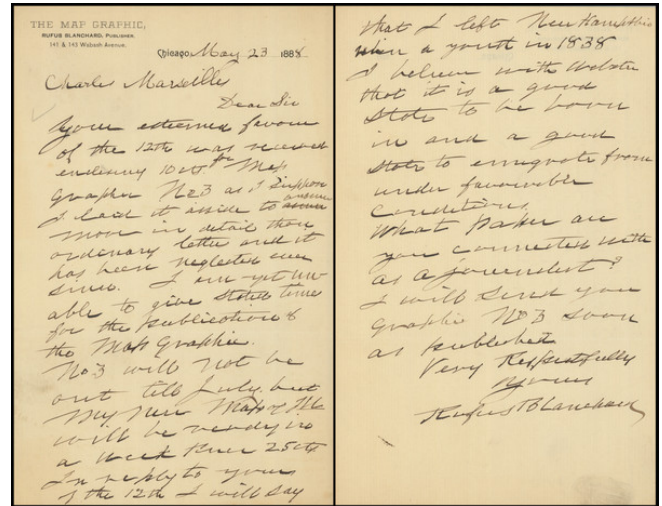 THE MAP GRAPHIC,
RUFUS BLANCHARD, PUBLISHER,
141 & 143 Wabash Avenue.
Chicago, May 23 1888
Charles Marseilles
Dear Sir
Your esteemed favour
of the 12th was received
enclosing 10 cts for Map
Graphic No 3 as I suppose
I laid it aside to answer
more in detail than
ordinary letter and it
has been neglected ever
since. I am yet un
able to give stated time
for the publication of
the Map Graphic.
No 3 will not be
out till July. but
My new Map of Ills
will be ready in
a week Price 25 cts
In reply to yours
of the 12th I will say
that I left New Hampshire
when a youth in 1838
I believe with Webster
that it is a good
State to be born
in and a good
State to emigrate from
under favourable
Conditions
What Paper are
you connected with
as a journalist?
I will send you
Graphic No 3 soon
as published
Very Respectfully
Yours
Rufus Blanchard